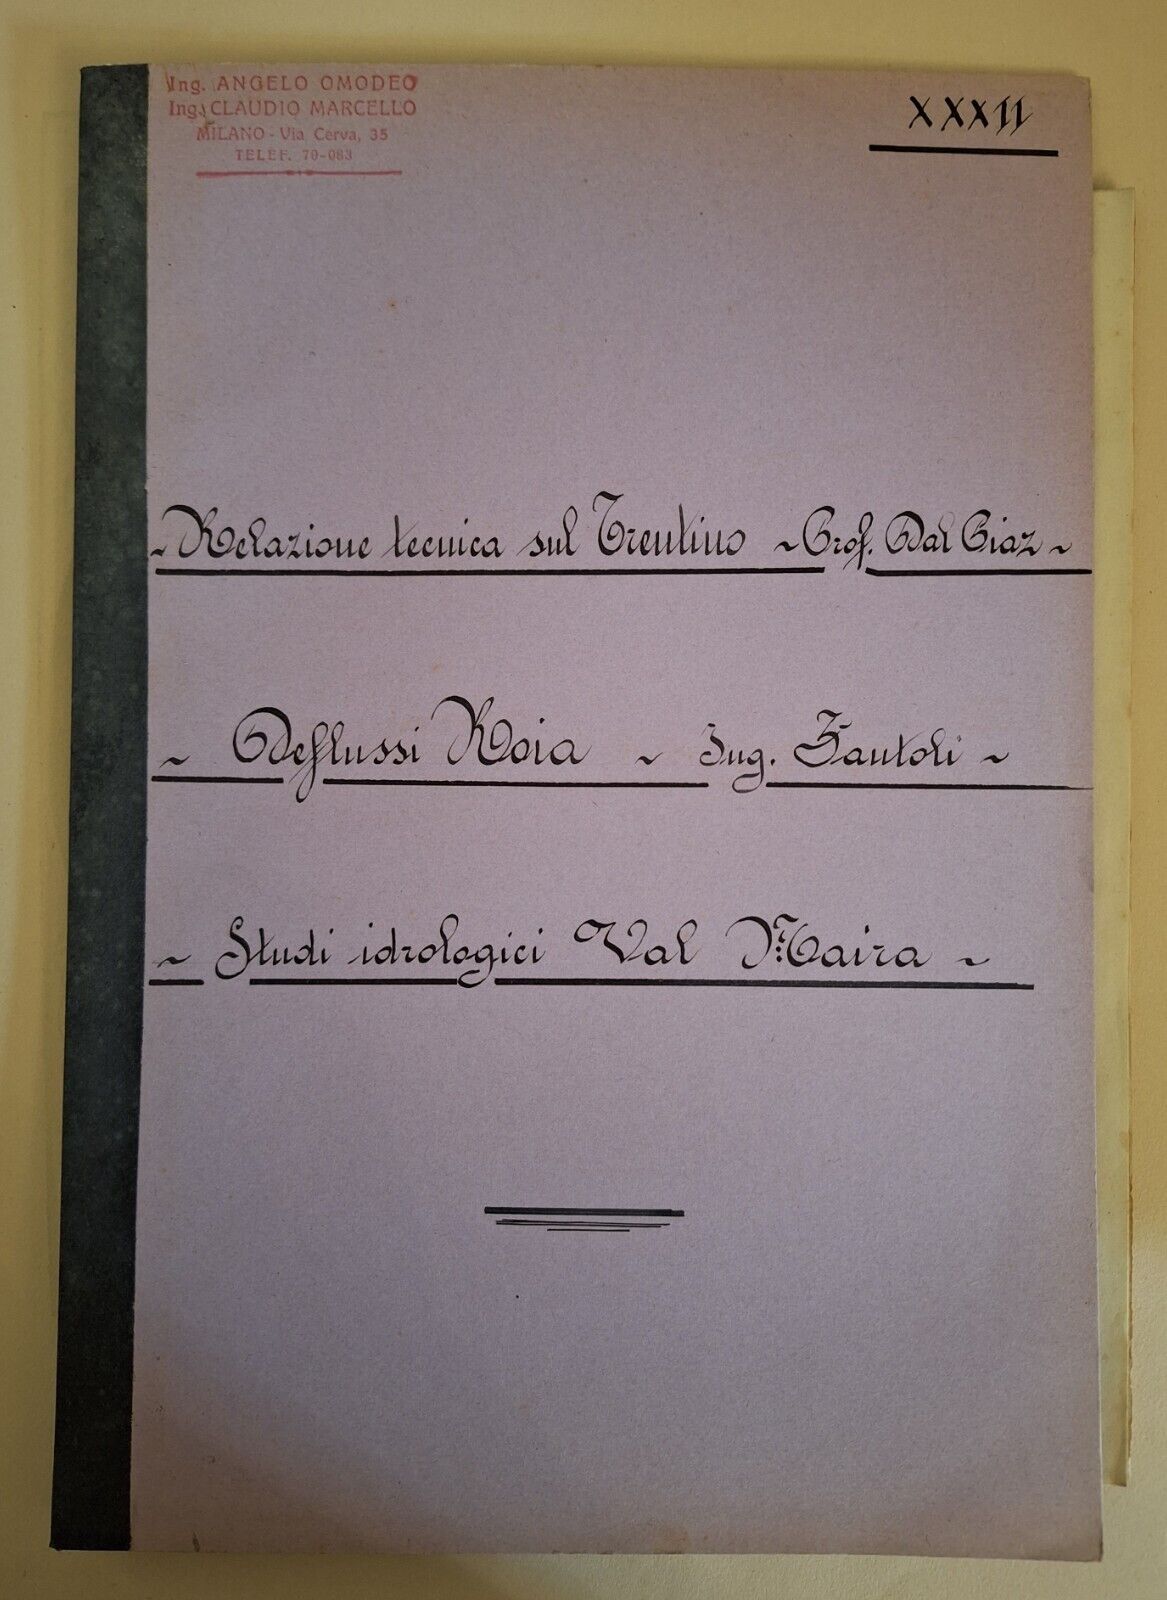 Ing. ANGELO OMODEO
Ing. CLAUDIO MARCELLO
MILANO - Via Cerva, 35
TELEF. 70-083
XXXII
~ Relazione tecnica sul Trentino ~ Prof. Dal Piaz ~
~ Deflussi Roia ~ Ing. Fantoli ~
~ Studi idrologici Val Maira ~